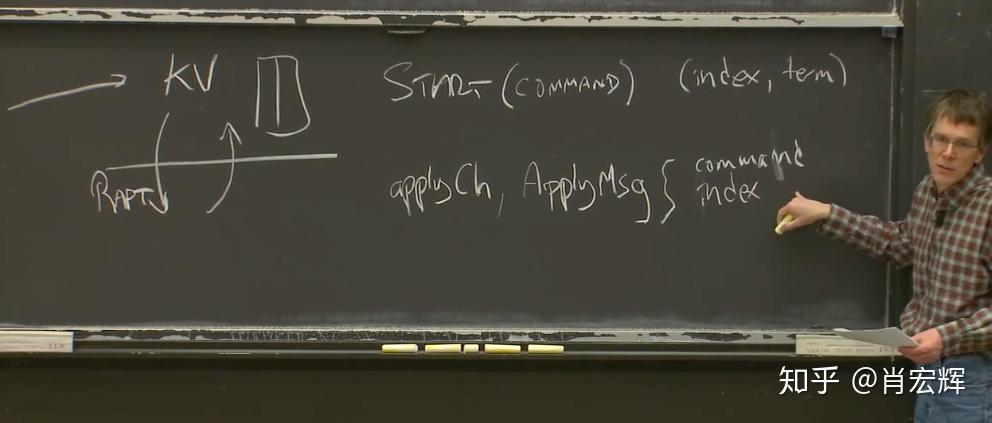 KV
START (COMMAND) (index, term)
RAFT
applyCh, ApplyMsg { command
index
知乎 @肖宏辉